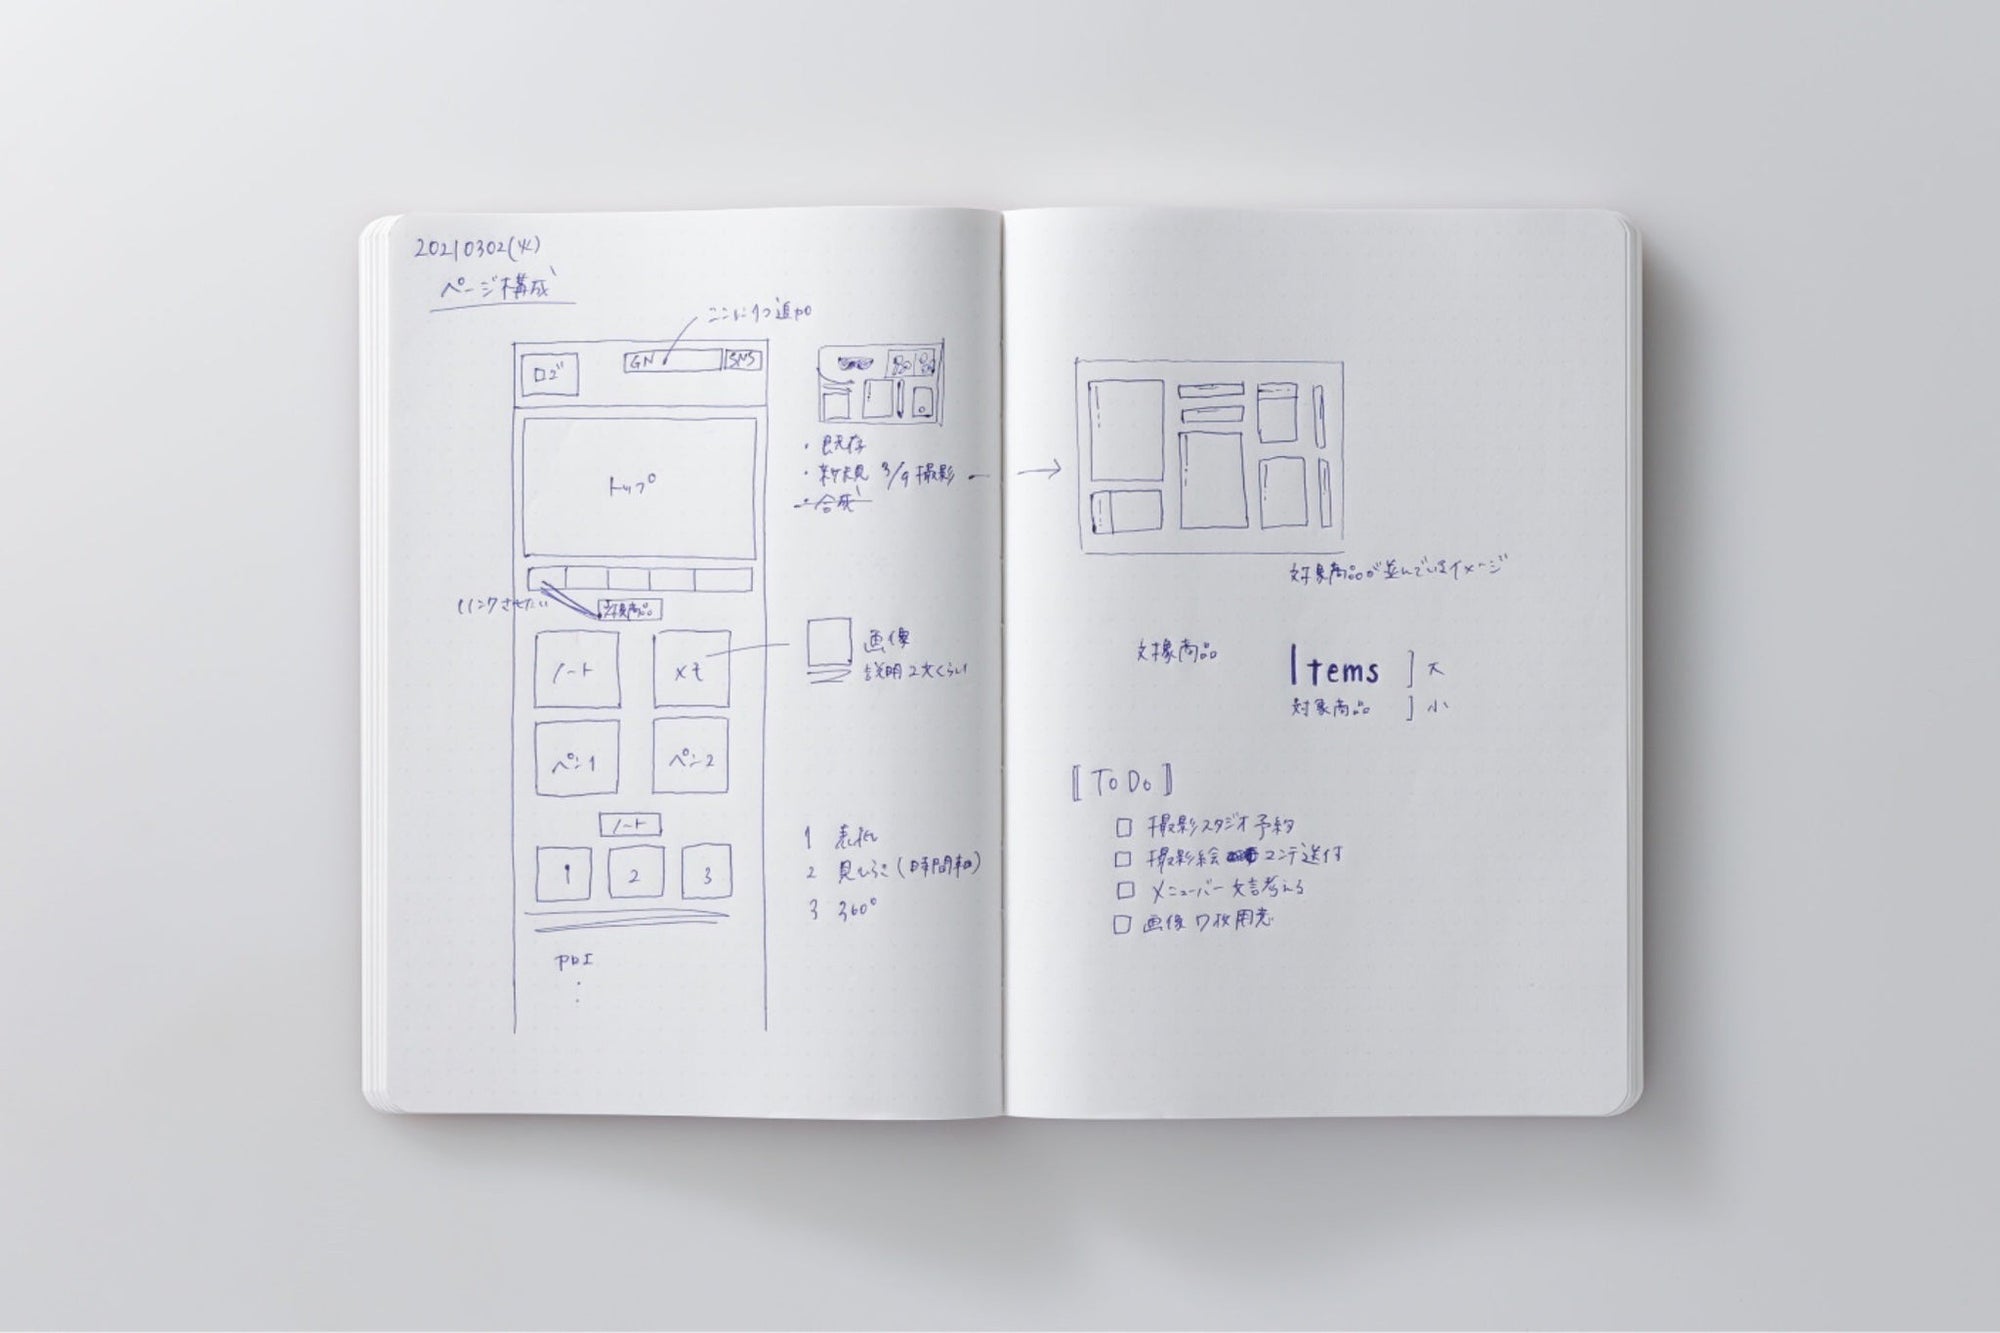 20210302(火)
ページ構成
ここに1つ追加
ロゴ
GN
SNS
トップ
・既存
・新規 3/9 撮影
・合成
リンクさせたい
対象商品
ノート
メモ
画像
説明 2文くらい
ペン1
ペン2
ノート
1
2
3
1 表紙
2 見ひらき(時間軸)
3 360°
対象商品が並んでいるイメージ
対象商品
Items ] 大
対象商品 ] 小
[ To Do ]
□ 撮影スタジオ予約
□ 撮影絵コンテ送付
□ メニューバー文言考える
□ 画像 7枚用意